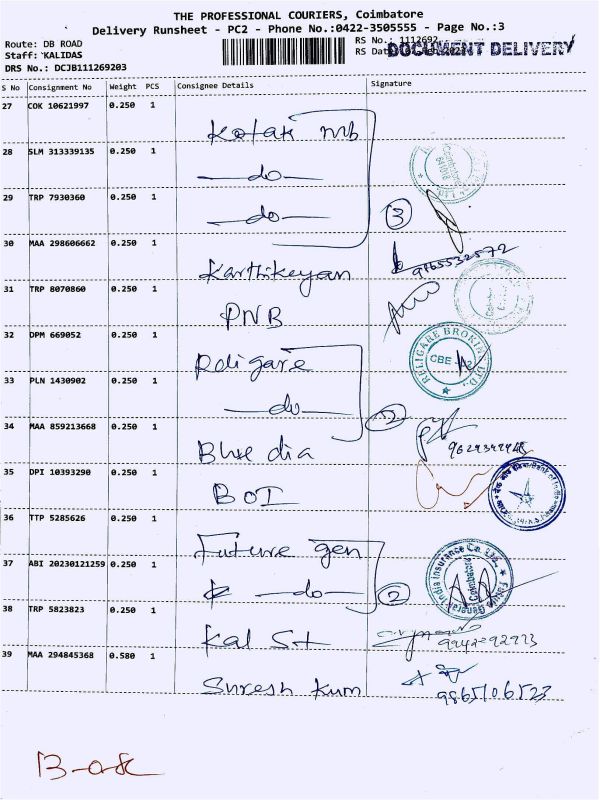 THE PROFESSIONAL COURIERS, Coimbatore
Delivery Runsheet - PC2 - Phone No.:0422-3505555 - Page No.:3
Route: DB ROAD
RS No.: 1112692
Staff: KALIDAS
RS Date
DOCUMENT DELIVERY
DRS No.: DCJB111269203
S No Consignment No Weight PCS Consignee Details Signature
27 COK 10621997 0.250 1
Kotak mb
28 SLM 313339135 0.250 1
—do—
29 TRP 7930360 0.250 1
—do—
3
30 MAA 298606662 0.250 1
Karthikeyan
9165532572
31 TRP 8070860 0.250 1
PNB
32 DPM 669052 0.250 1
Religare
RELIGARE BROKING LTD.
CBE
33 PLN 1430902 0.250 1
—do—
2
34 MAA 859213668 0.250 1
Blue dia
35 DPI 10393290 0.250 1
BOI
Bank of India
36 TTP 5285626 0.250 1
Future gen
37 ABI 20230121259 0.250 1
—do—
2
Future Generali India Insurance Co. Ltd.
Coimbatore
38 TRP 5823823 0.250 1
Kal St
39 MAA 294845368 0.580 1
Suresh Kum
9865106523